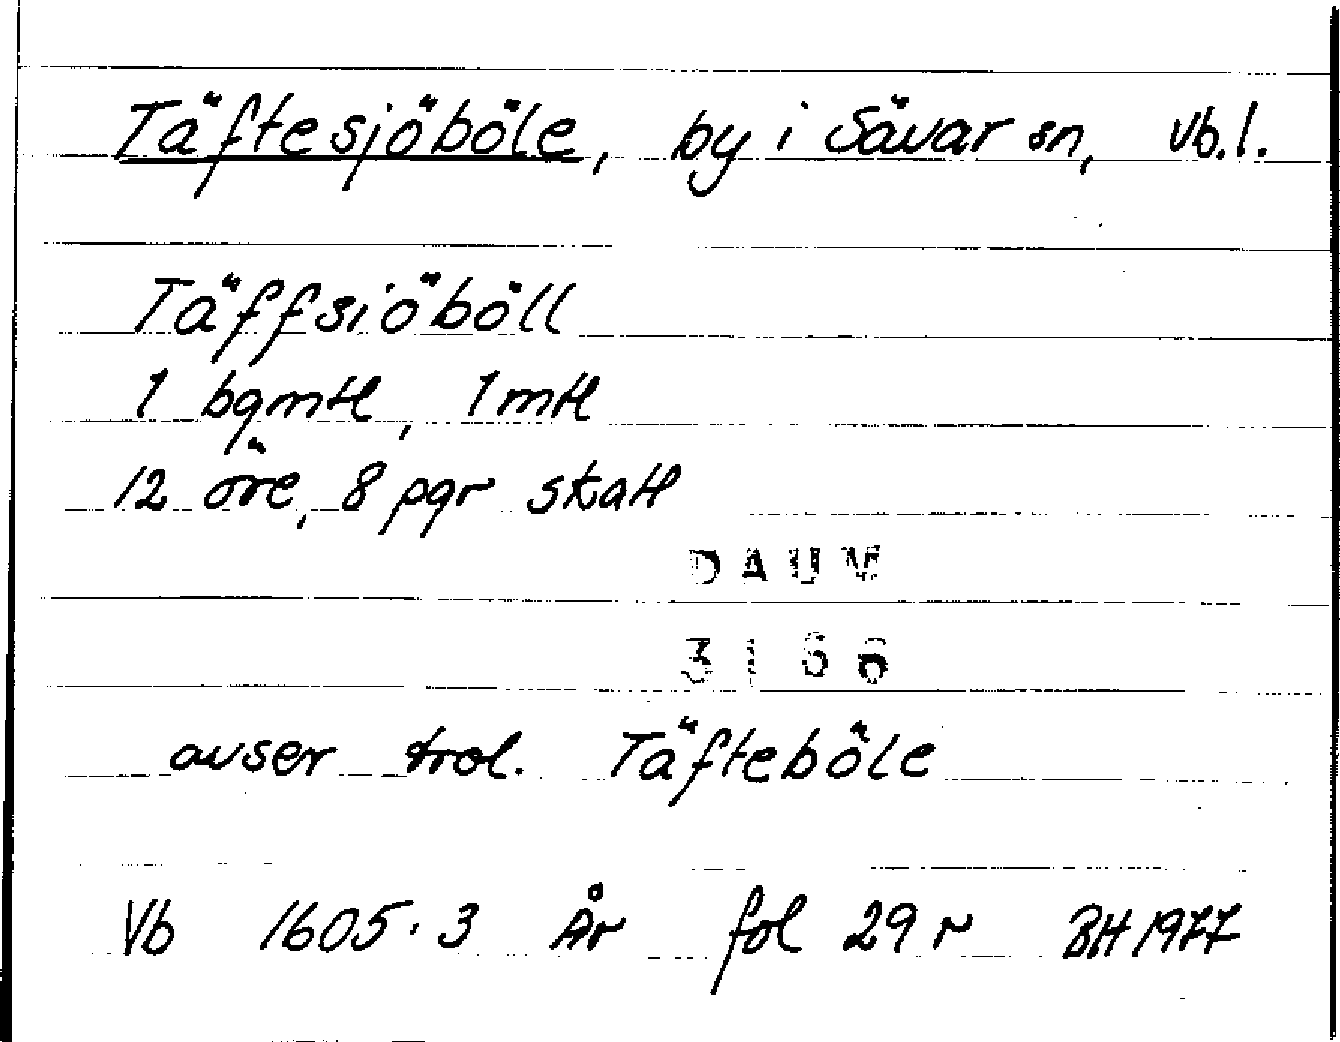 Täftesjöböle, by i Sävar sn, Vb.l.
Täffsiöböll
1 bgmtl, 1 mtl
12 öre, 8 pgr skatt
DAUM
3166
avser trol. Täfteböle
Vb 1605:3 År fol 29 r BH 1977